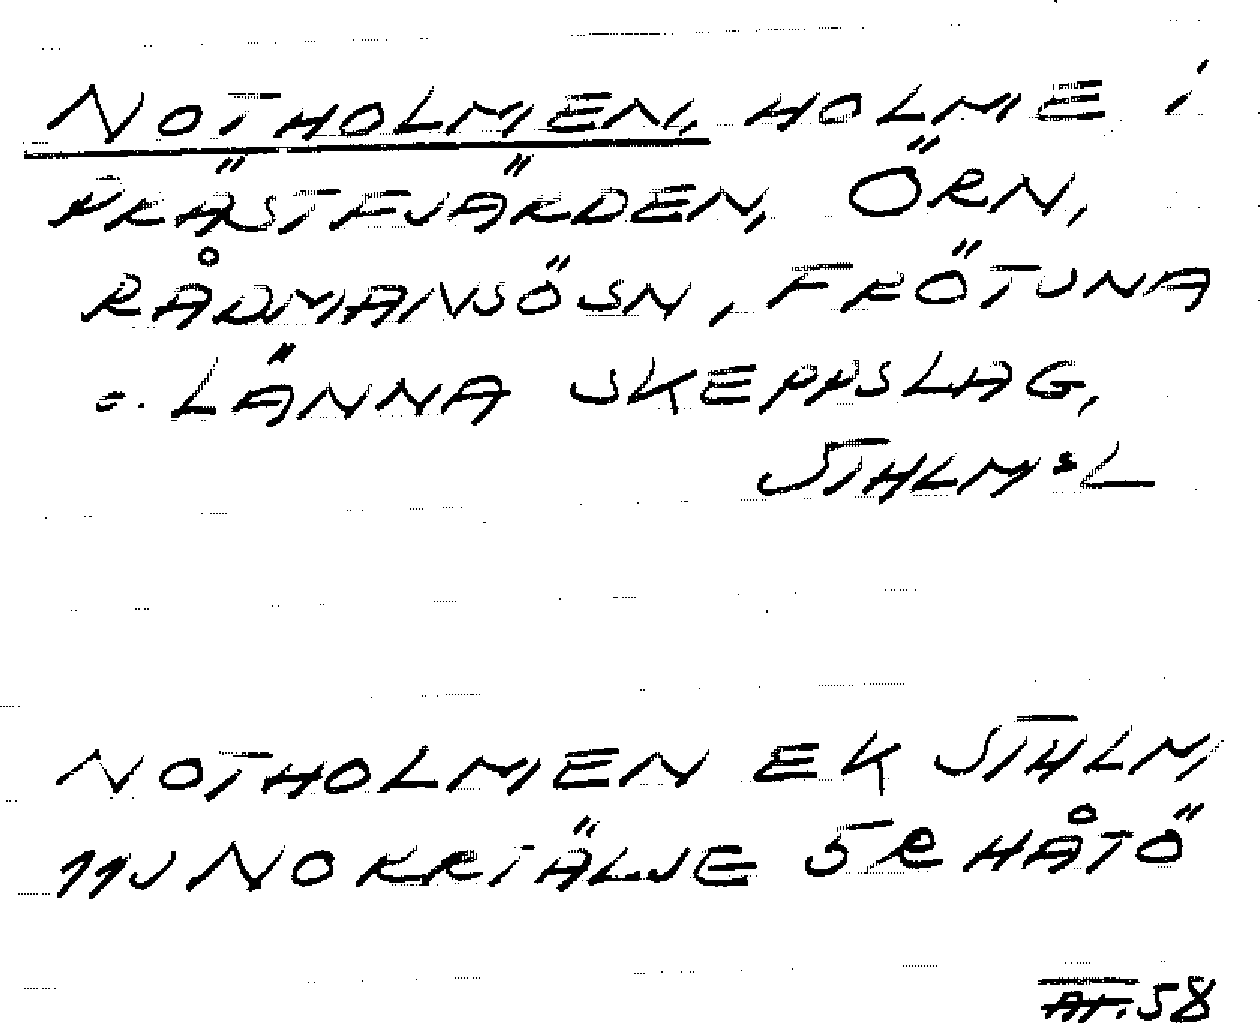 NOTHOLMEN, HOLME i
PRÄSTFJÄRDEN, ÖRN,
RÅDMANSÖ SN, FRÖTUNA
o. LÄNNA SKEPPSLAG,
STHLMS L
NOTHOLMEN EK STHLM,
11J NORRTÄLJE 5e HÅTÖ
58